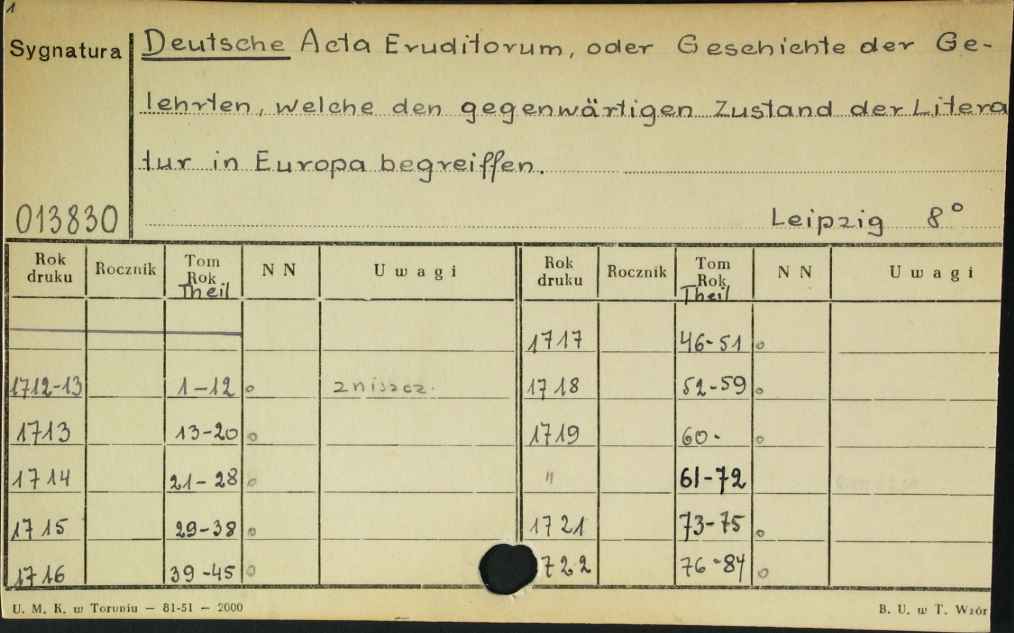 1
Sygnatura Deutsche Acta Eruditorum, oder Geschichte der Ge-
lehrten, welche den gegenwärtigen Zustand der Litera
tur in Europa begreiffen.
013830 Leipzig 8°
Rok druku Rocznik Tom Rok Theil NN Uwagi Rok druku Rocznik Tom Rok Theil NN Uwagi
1717 46-51 o
1712-13 1-12 o zniszcz. 1718 52-59 o
1713 13-20 o 1719 60- o
1714 21-28 o " 61-72
1715 29-38 o 1721 73-75 o
1716 39-45 o 1722 76-84 o
U. M. K. w Toruniu — 81-51 — 2000 B. U. w T. Wzór